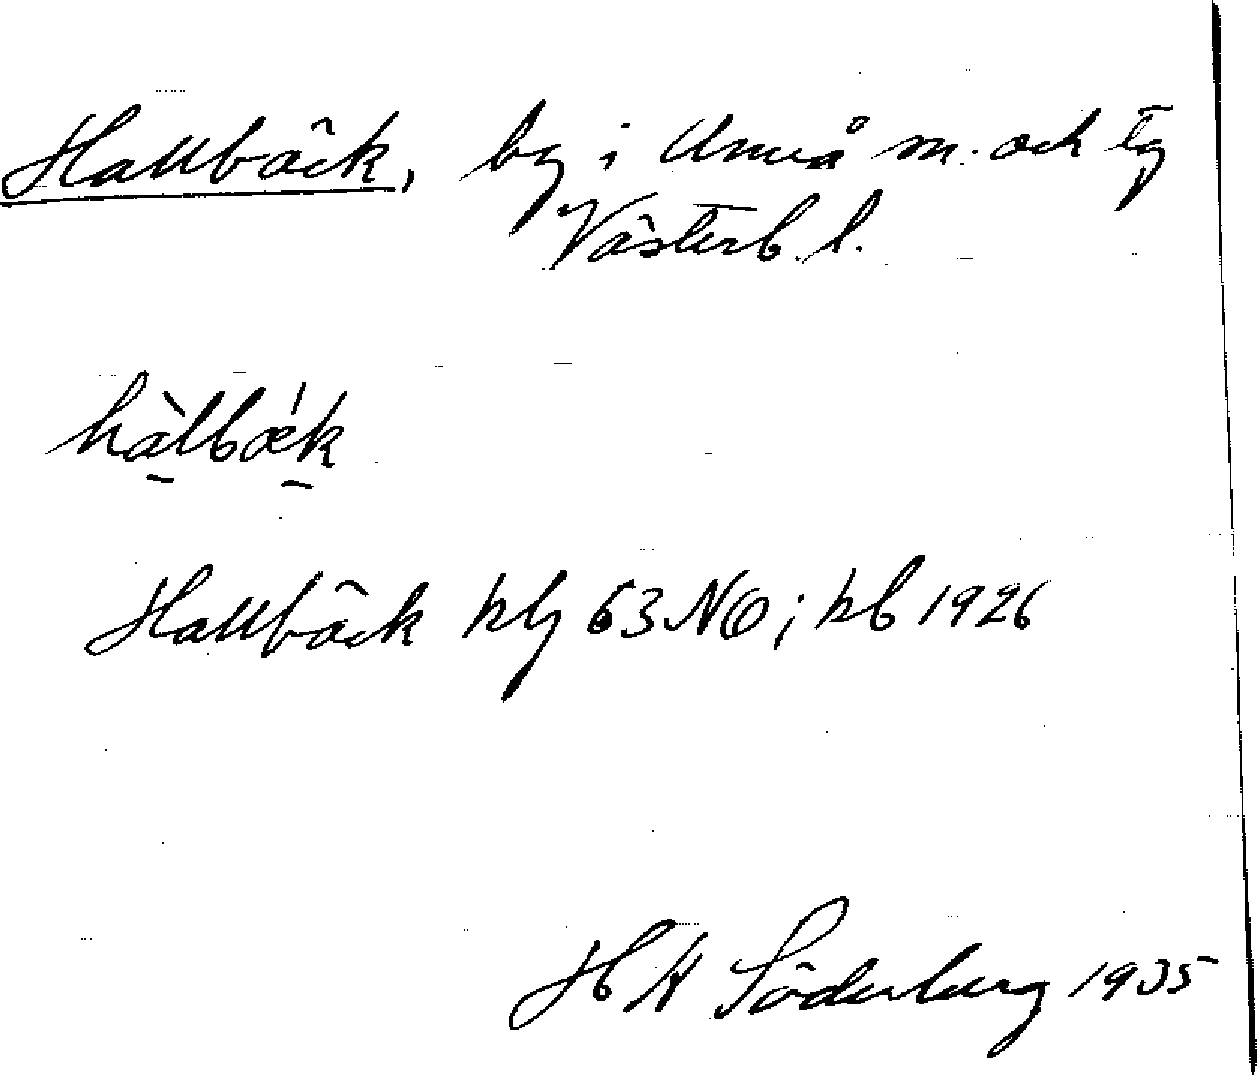 Hallbäck, by i Umeå sn. och tg
Västerb. l.
hàlbǽk
Hallbäck kbg 63 NO; kb 1926
H H Söderberg 1935